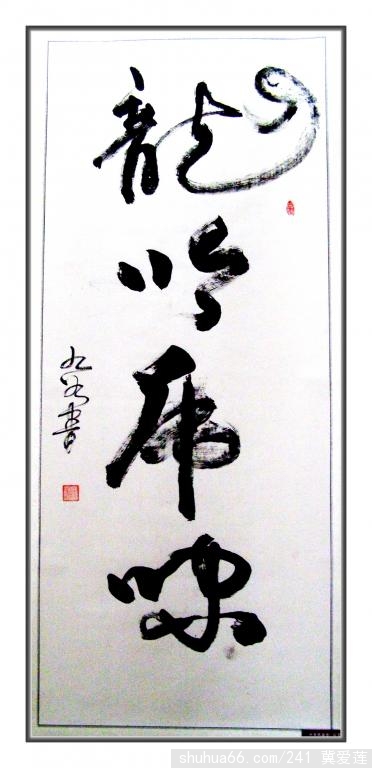 龍吟虎嘯
書
shuhua66.com/241 冀爱莲